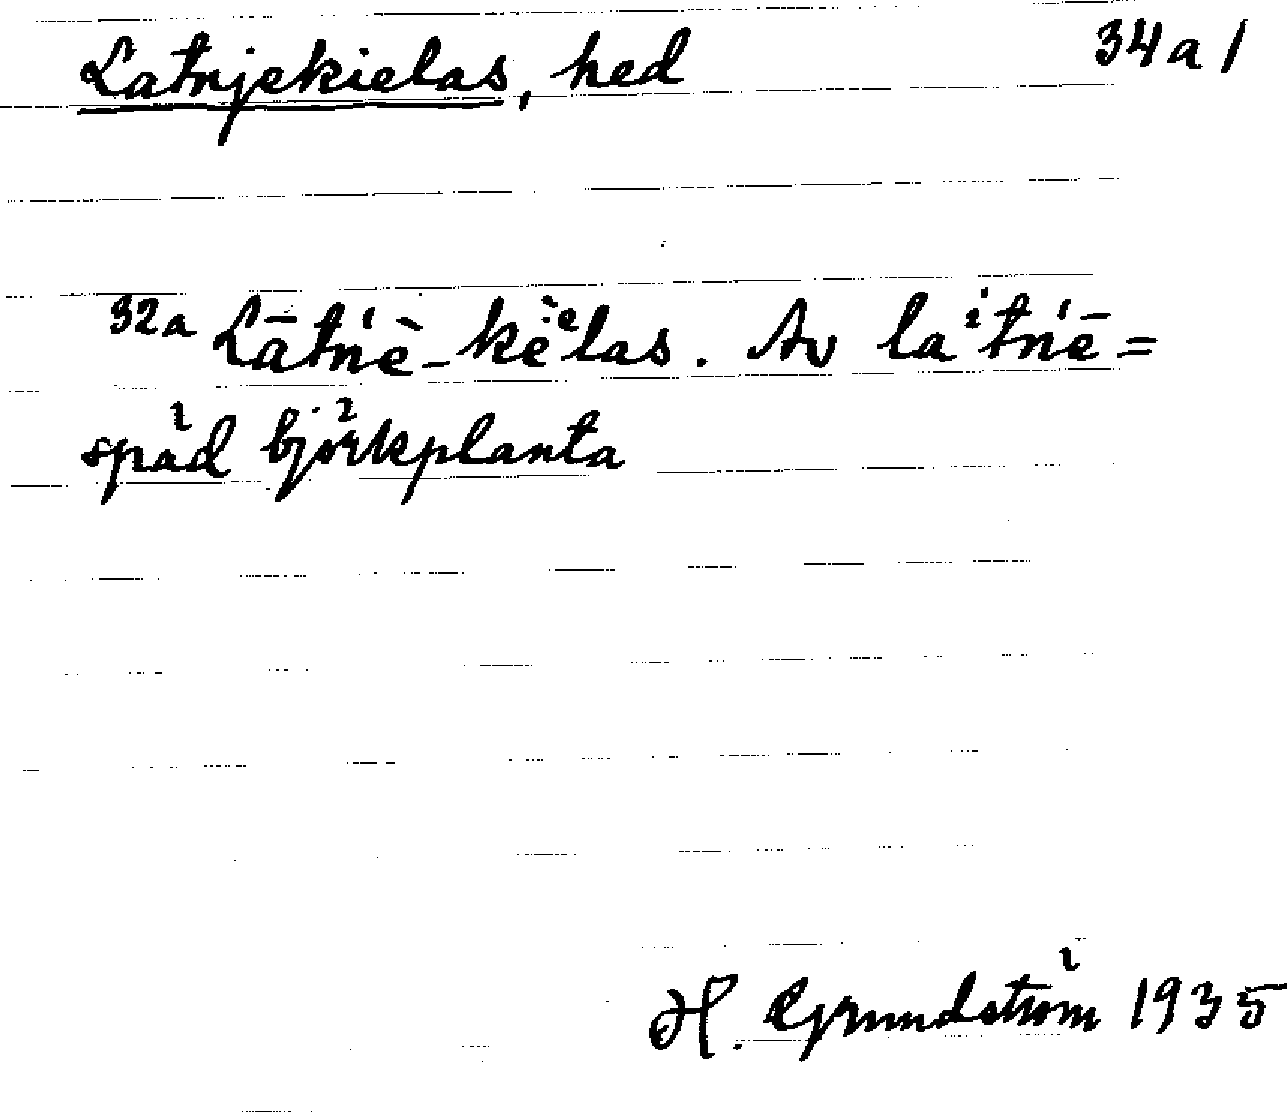 Latnjekielas, hed 34a1
32a Lātńè-kèᵉlas. Av laⁱtńē=
späd björkplanta
H. Grundström 1935